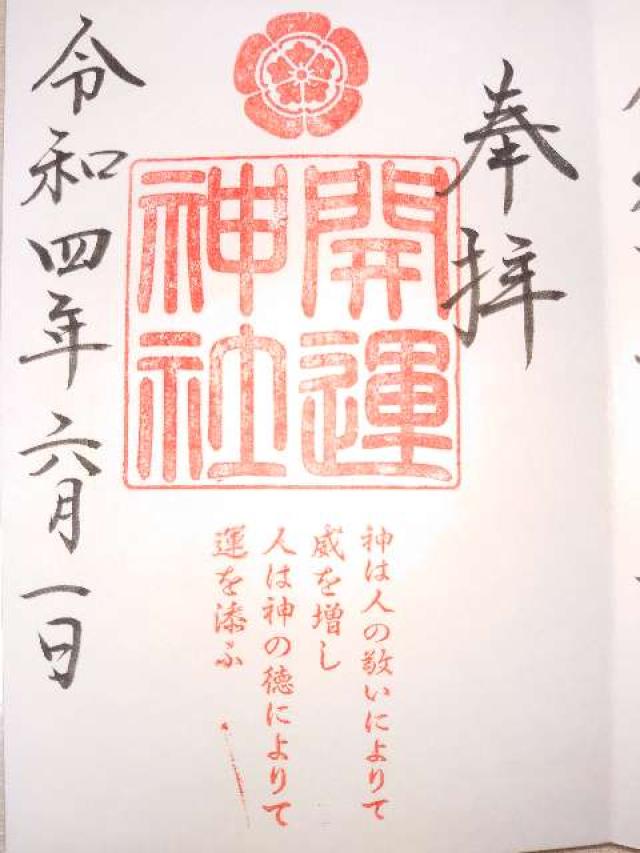 奉拝
開運
神社
神は人の敬いによりて
威を増し
人は神の徳によりて
運を添ふ
令和四年六月一日